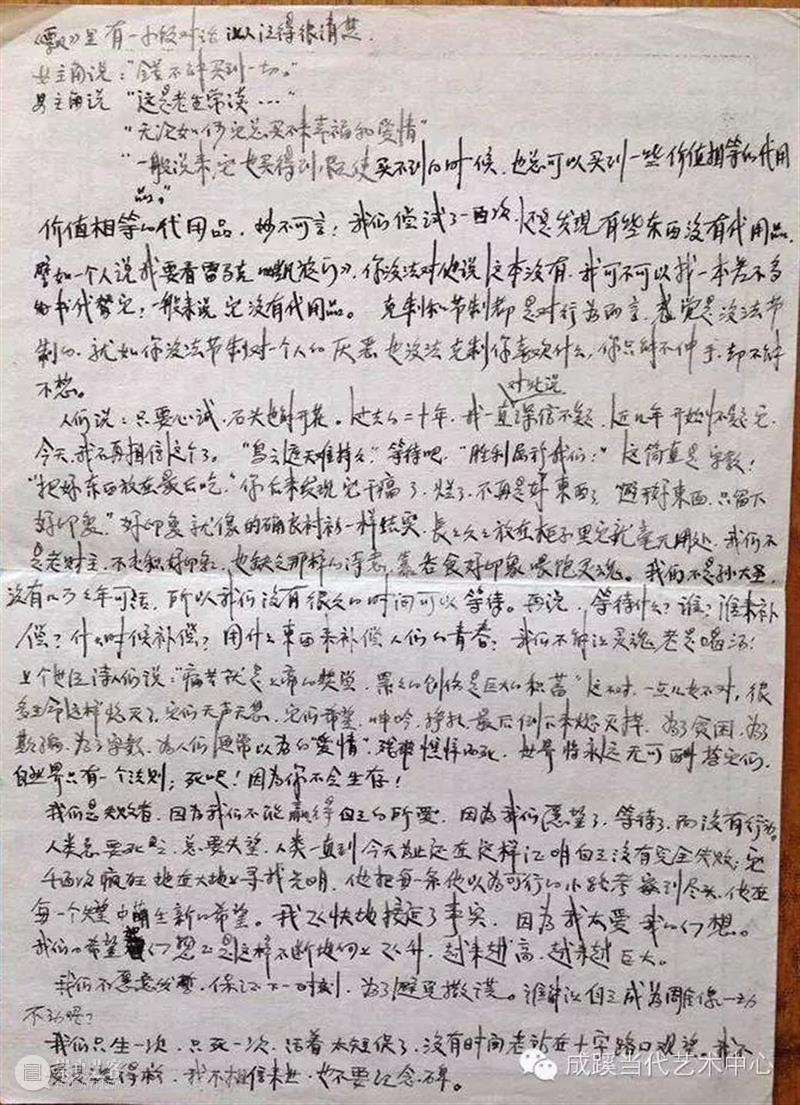 《飘》里有一小段对话让人记得很清楚.
女主角说:"钱不能买到一切。"
男主角说 "这是老生常谈…"
"无论如何它总买不来幸福和爱情"
"一般说来,它也买得到,假使买不到的时候,也总可以买到一些价值相等的代用
品。"
价值相等的代用品,妙不可言!我们尝试了一两次,还是发现有些东西没有代用品.
譬如一个人说我要看雷马克《凯旋门》,你没法对他说这本没有,我可不可以找一本差不多
的书代替它;一般来说 它没有代用品。 克制和节制都是对行为而言,感觉是没法节
制的,就如你没法节制对一个人的厌恶也没法克制你喜欢什么,你只能不伸手,却不能
不想。
对此说
人们说:只要心诚,石头也能开花。过去的二十年,我一直深信不疑,近几年开始怀疑它,
今天,我不再相信这个了。"乌云遮天难持久"等待吧,"胜利属于我们!"这简直是字数!
"把好东西放在最后吃,"你后来发现它干瘪了,烂了,不再是好東西了 好東西,只留下
好印象。"好印象就像的确良衬衫一样结实,長久久放在柜子里它就毫无用处,我们不
是老财主,不走积好印象,也缺乏那样的诗意,靠吞食好印象喂饱灵魂。我们不是孙大圣,
没有几万年可活,所以我们没有很久的时间可以等待。再说,等待什么?谁?谁来补
偿?什么时候补偿?用什么東西来补偿人们的青春?我们不能让灵魂老是喝汤!
上个世纪诗人们说:"痛苦就是上帝的奖赏,累累的创伤是巨大的积蓄"这不对,一点儿也不对,很
多生命这样熄灭了,它们无声无息,它们希望,呻吟,挣扎,最后倒下来熄灭掉,为了贫困,为
欺骗,为了字数,为人们通常以为的"爱情",艰难憔悴而死,世界将永远无可酬答它们,
自然界只有一个法则:死吧!因为你不会生存!
我们是失败者,因为我们不能赢得自己的所爱,因为我们愿望了,等待了,而没有行为,
人类总要死亡,总要失望,人类一直到今天为止还在这样证明自己没有完全失败;它
千百次疯狂地在大地上寻找光明,他把每一条他以为可行的小路考察到尽头,他在
每一个失望中萌生新的希望。我飞快地接受了事实,因为我太爱我的幻想。
我们的希望 幻想正是这样不断地向上飞升,越来越高,越来越巨大。
我们不愿意发誓,保证下一时刻,为了避免撒谎。谁能让自己成为周围像一动
不动呢?
我们只生一次,只死一次,活着太短促了,没有时间老站在十字路口观望,我不
,我不相信来世,也不要纪念碑。
成蹊当代艺术中心